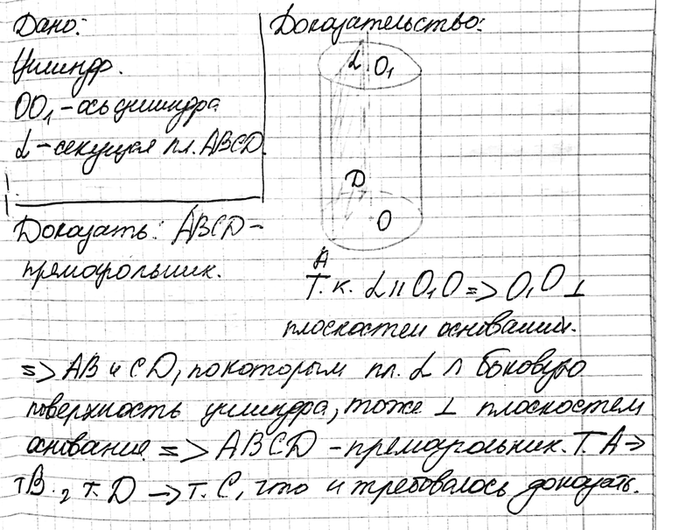 Дано:
Цилиндр.
OO₁ - ось цилиндра
α - секущая пл. ABCD.
Доказать: ABCD -
прямоугольник.
Доказательство:
α O₁
D
O
A
Т. к. α || O₁O => O₁O ⊥
плоскостям оснований.
=> AB и CD, по которым пл. α ∩ боковую
поверхность цилиндра, тоже ⊥ плоскостям
основание => ABCD - прямоугольник. Т. A →
т B. , т. D → т. C, что и требовалось доказать.